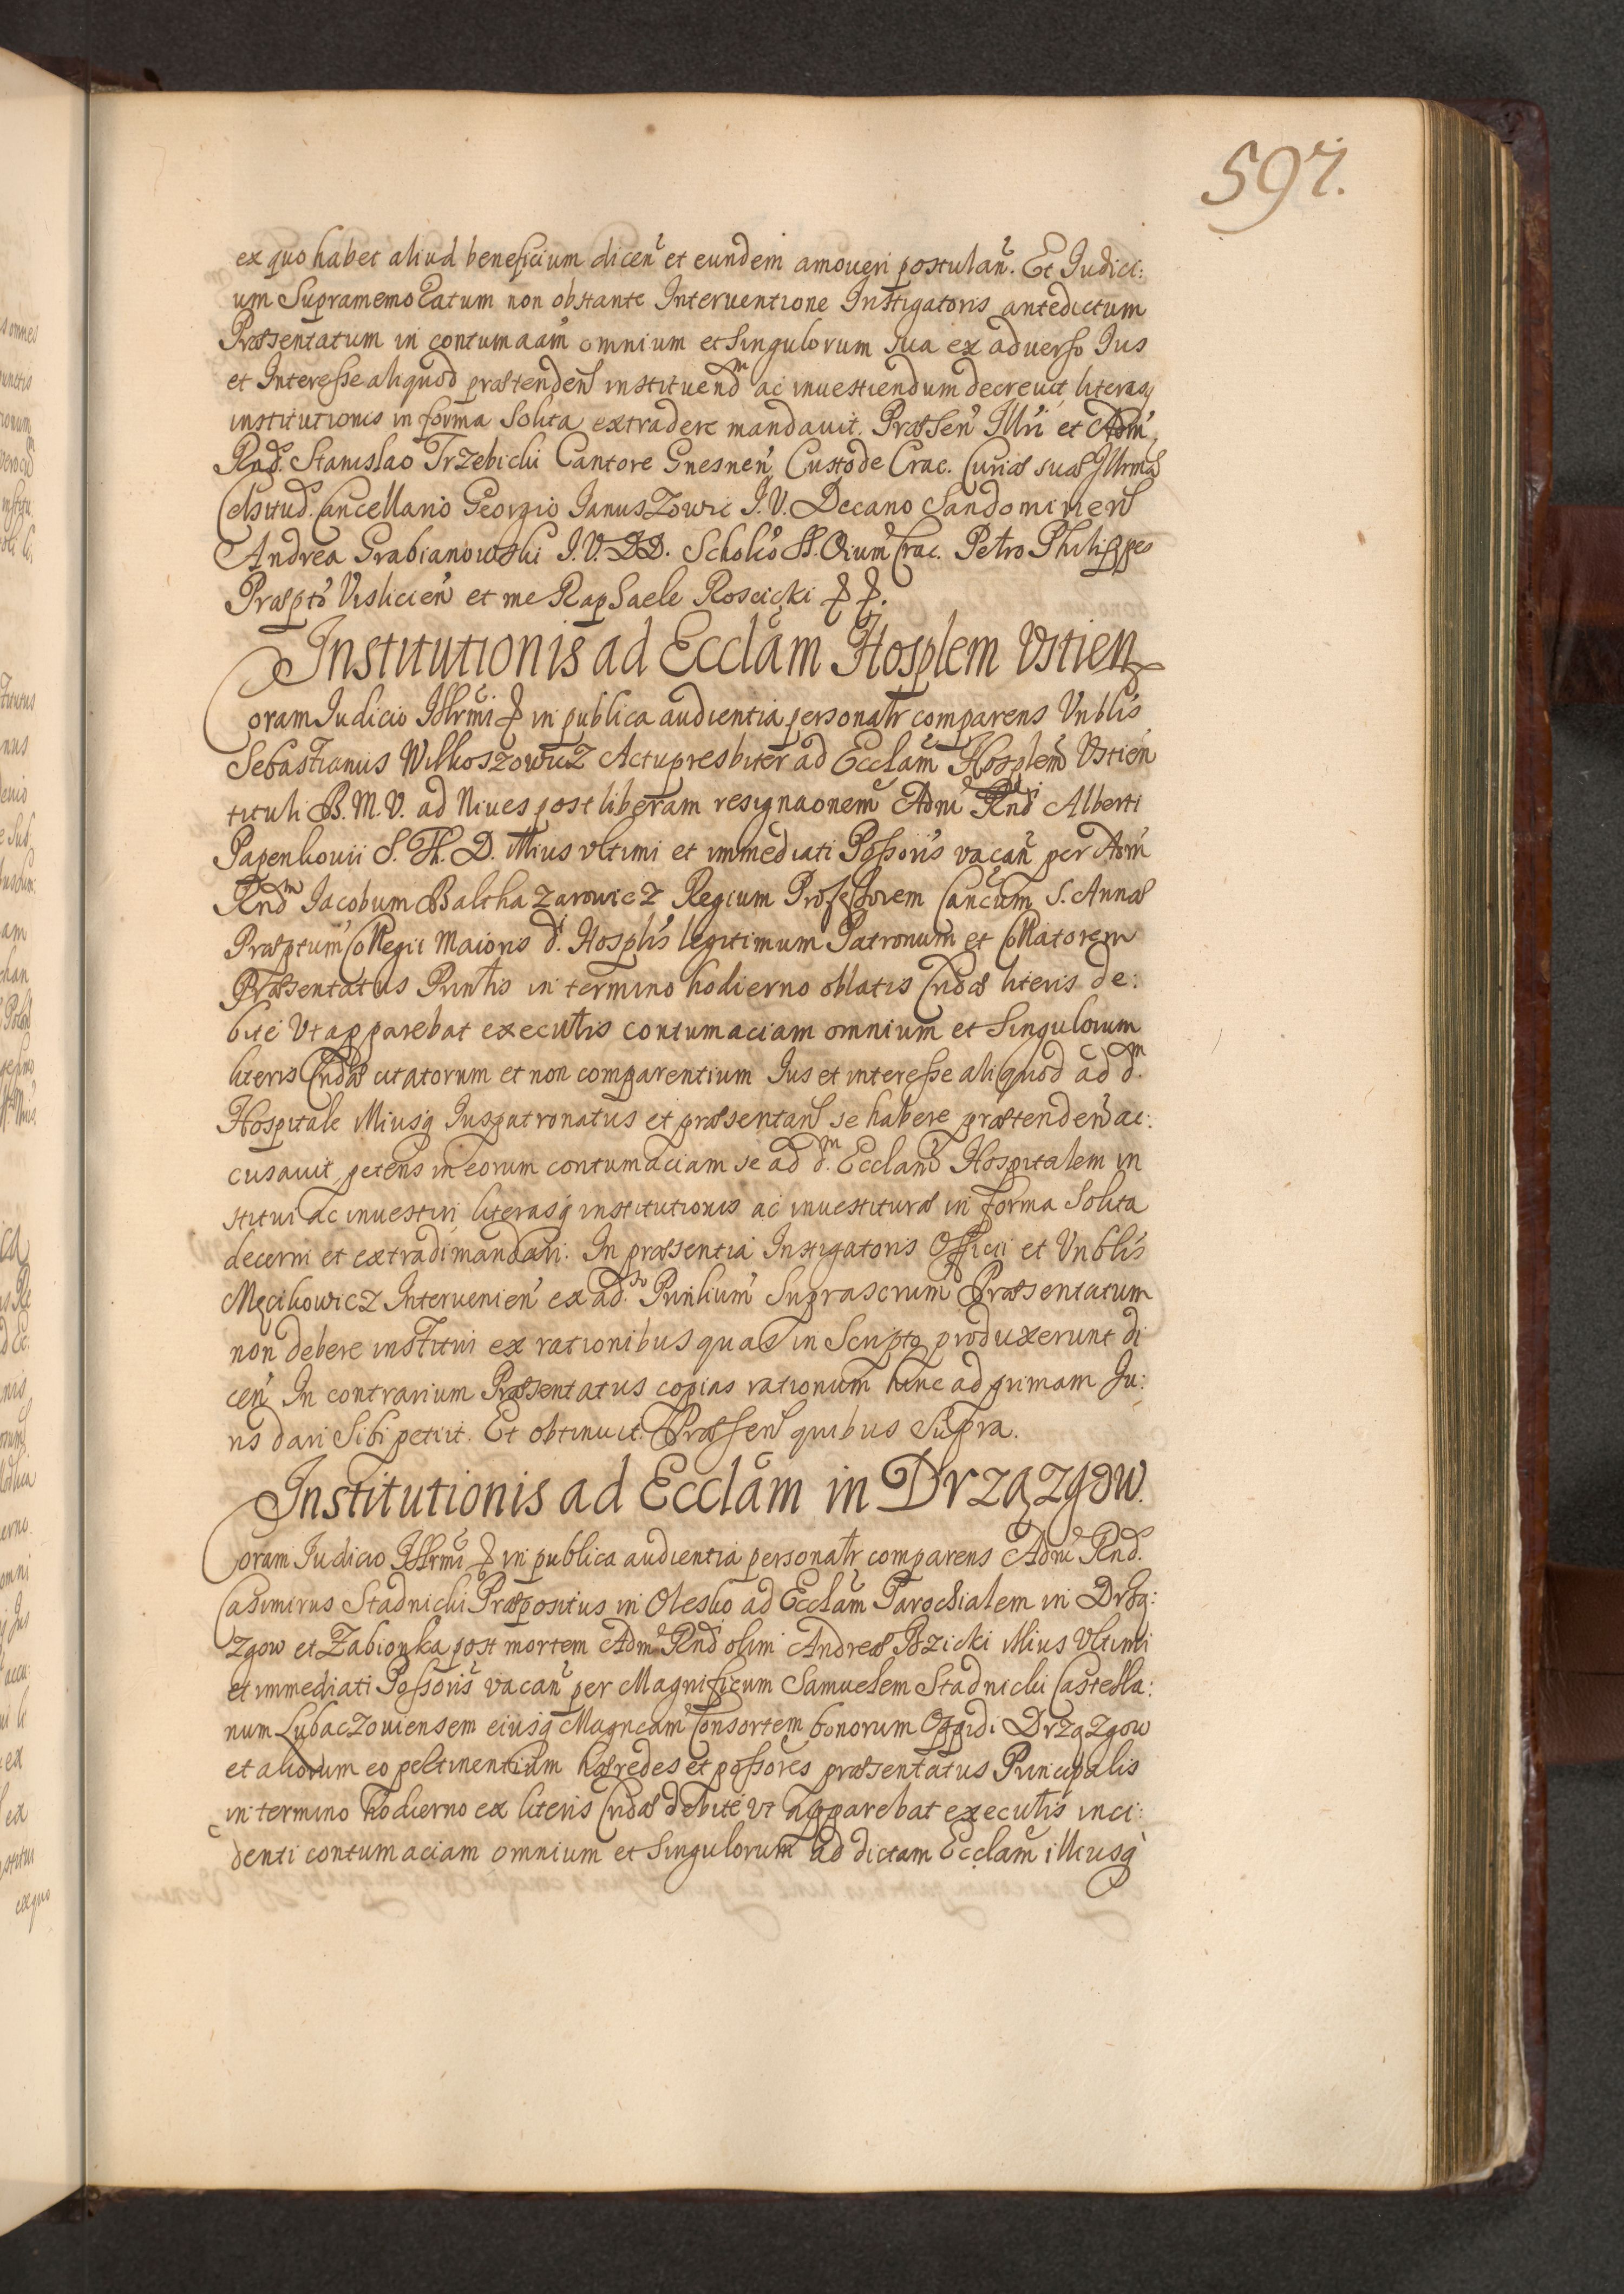 597.
ex quo habet aliud beneficium diceñ et eundem amoueri postulañ. Et Iudici:
um Supramemoratum non obstante Interuentione Instigatoris antedictum
Præsentatum in contumaam̃ omnium et singulorum sua ex aduerso Ius
et Interesse aliquod prætendeñ instituend.m ac inuestiendum decreuit literasq
institutionis in forma solita extradere mandauit. Præsen̄ Illri et Adm̃
Rnds. Stanislao Trzebicki Cantore Gnesneñ Custode Crac. Curiæ suæ Illrmæ
Celsitud. Cancellario Georgio Ianuszowic I.V. Decano Sandomirieñ
Andrea Grabianowski I.V.DD. Scholrõ SS. Oium̃ Crac. Petro Philippes
Præptõ Visliceñ et me Raphaele Roscicki
Institutionis ad Ecclãm Hosplem Vstien
Coram Iudicio Illrmi in publica audientia personatr comparens Vnblis
Sebastianus Wilkoszowicz Actupresbiter ad Ecclãm Hosplem̃ Vstieñ
tituli B.M.V. ad Niues post liberam resignaonem̃ Adm̃ Rndi Alberti
Papenkouii S.Th.D. illius vltimi et immediati Possoris̃ vacañ per Adm̃
Rndm Iacobum Balthazarowicz Regium Professorem Cancum̃ S. Annæ
Præptum̃ Collegii Maioris d.i Hosplis̃ legitimum Patronum et Collatorem
Præsentatus Prinlis in termino hodierno oblatis Cridæ literis de:
bite vt apparebat executis contumaciam omnium et singulorum
literis Cridæ citatorum et non comparentium Ius et interesse aliquod ad d.m
Hospitale illiusq Iuspatronatus et præsentañ se habere prætendeñ ac:
cusauit petens in eorum contumaciam se ad d.m Ecclam̃ Hospitalem in
stitui ac inuestiri literasq institutionis ac inuestituræ in forma solita
decerni et extradi mandari. In præsentia Instigatoris Officii et Vnblis
Męcikowicz Interuenieñ ex ad.so Prinlium̃ Suprascrum̃ Præsentatum
non debere institui ex rationibus quas in Scripto produxerunt di
ceñ In contrarium Præsentatus copias rationum hinc ad primam Iu:
ris dari sibi petiit. Et obtinuit. Præsen̄ quibus supra.
Institutionis ad Ecclãm in Drzązgow.
Coram Iudicio Illrmi in publica audientia personatr comparens Adm̃ Rnds.
Casimirus Stadnicki Præpositus in Olesko ad Ecclãm Parochialem in Drzą:
zgow et Zabionka post mortem Adm̃ Rndi olim Andreæ Rzicki illius vltimi
et immediati Possoris̃ vacañ per Magnificum Samuelem Stadnicki Castella:
num Lubaczouiensem eiusq Magncam̃ Consortem bonorum Oppidi Drzązgow
et aliorum eo pertinentium hæredes et possores præsentatus Principalis
in termino hodierno ex literis Cridæ debite vt apparebat executis inci:
denti contumaciam omnium et singulorum ad dictam Ecclam̃ illiusq